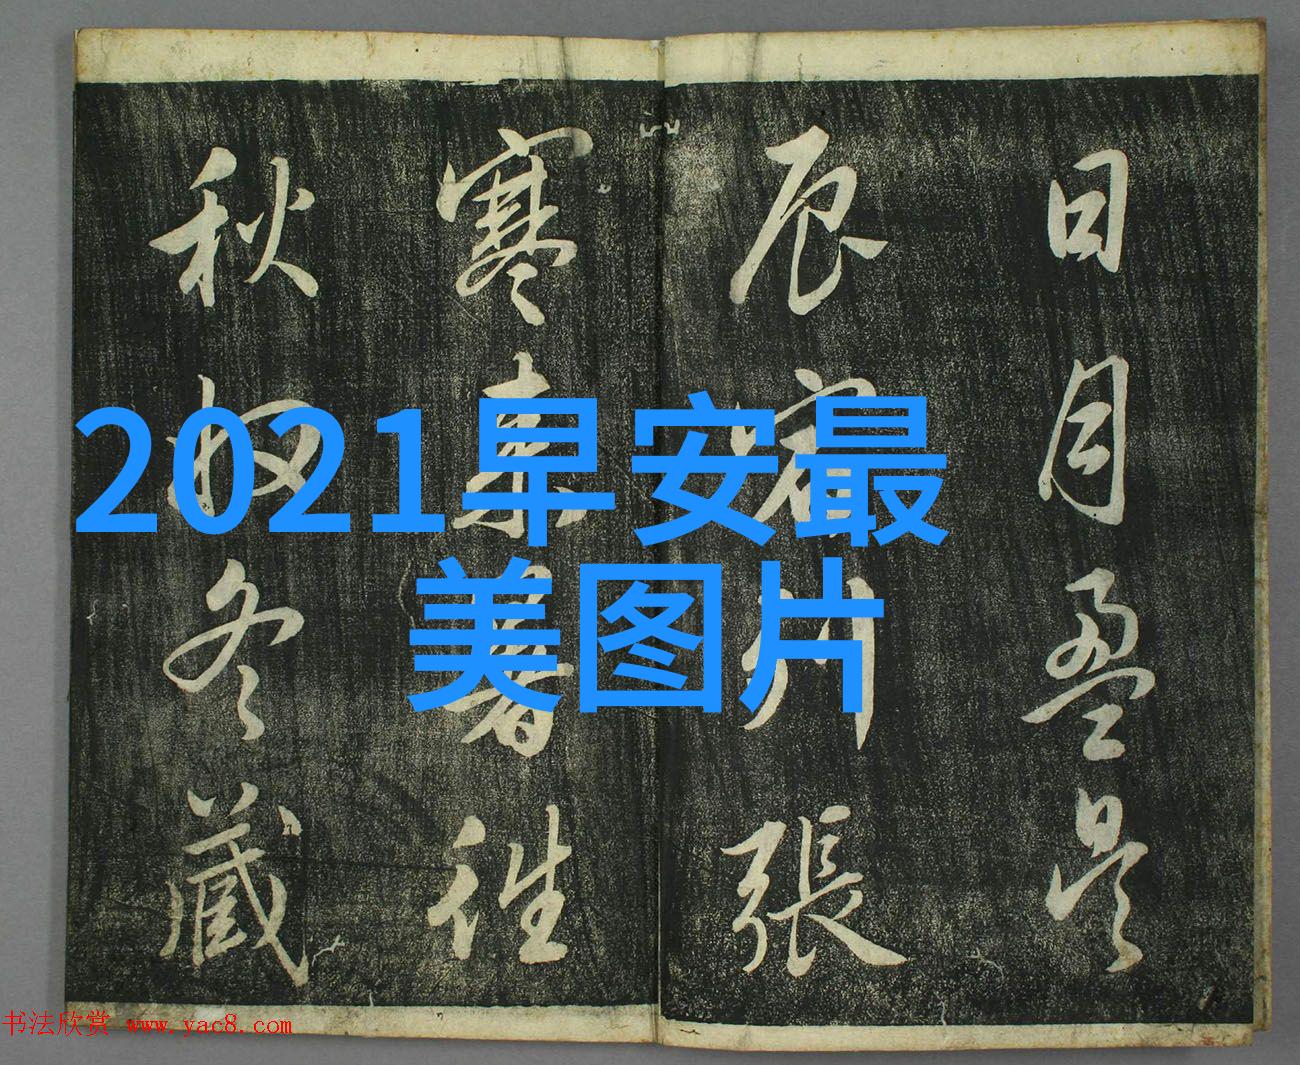 日月盈昃
辰宿列張
寒来暑往
秋收冬藏
2021早安最
美图片
书法欣赏 www.yac8.com